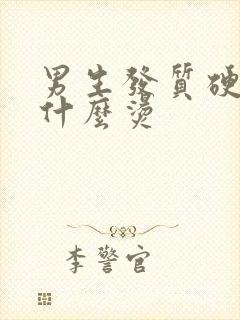 男生發質硬
什麼燙
李警官